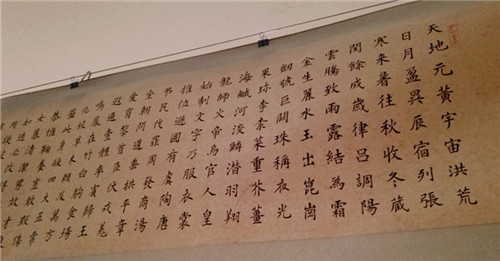 天地元黄宇宙洪荒
日月盈昃辰宿列張
寒来暑往秋收冬蔵
閏餘成歲律吕調陽
雲騰致雨露結為霜
金生麗水玉出崑崗
劍號巨闕珠稱夜光
果珍李柰菜重芥薑
海鹹河淡鱗潛羽翔
龍師火帝鳥官人皇
始制文字乃服衣裳
推位遜國有虞陶唐
弔民伐罪周發商湯
坐朝問道垂拱平章
愛育黎首臣伏戎羌
遐邇壹體率賓歸王
鳴鳳在竹白駒食場
化被草木賴及萬方
蓋此身髮四大五常
恭惟鞠養豈敢毀傷
女慕貞潔男效才良